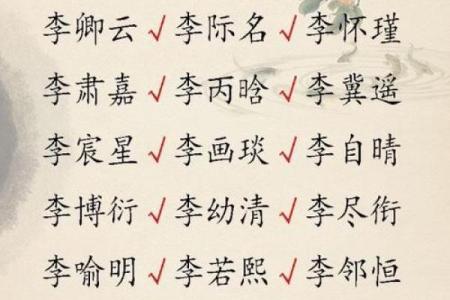 李卿云√李际名√李怀瑾
李肃嘉√李丙晗√李冀遥
李宸星√李画琰√李自晴
李博衍√李幼清√李尽衔
李喻明√李若熙√李邻恒